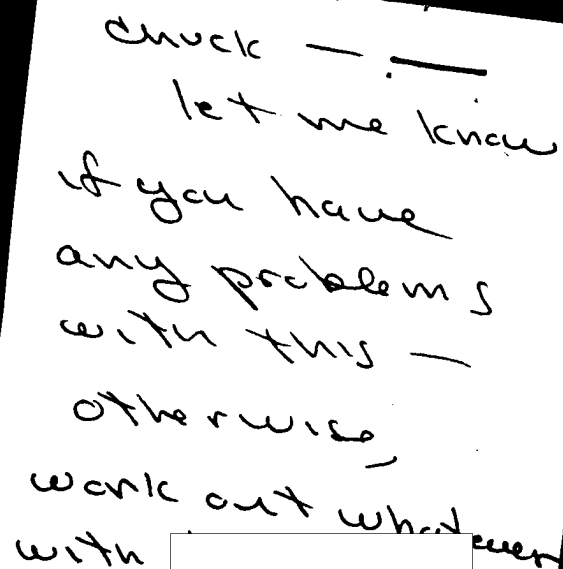 Chuck —
let me know
if you have
any problems
with this —
otherwise,
work out whatever
with